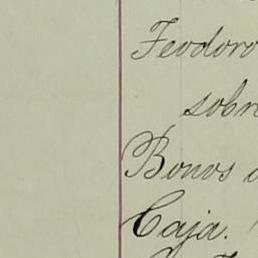 Teodoro
sobre
Bonos
Caja.